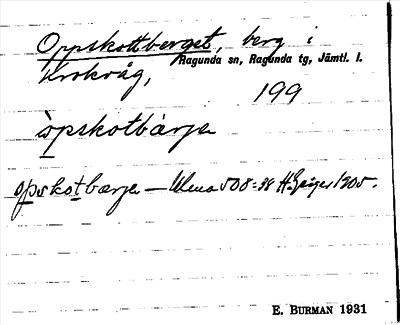 Oppskottberget, berg i
Ragunda sn, Ragunda tg, Jämtl. l.
Krokvåg,
199
òpskotbàrje
opskotbærje – Uma 508:98 H. Geijer 1905.
E. BURMAN 1931